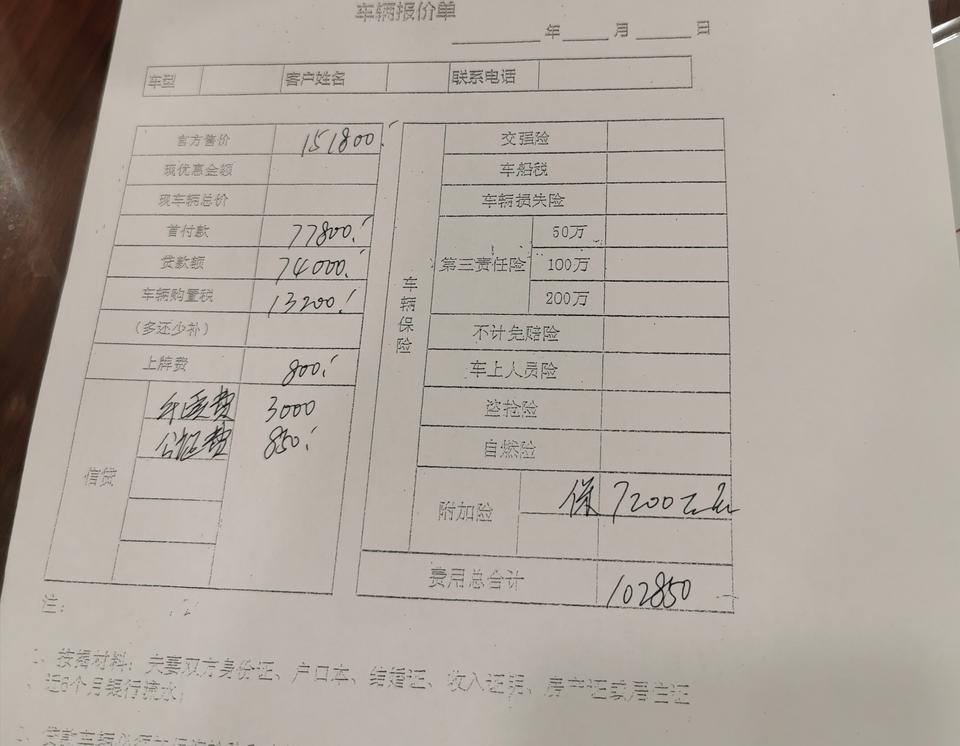 车辆报价单
年 月 日
车型 客户姓名 联系电话
官方售价 151800
现优惠金额
现车辆总价
首付款 77800
贷款额 74000
车辆购置税 13200
(多还少补)
上牌费 800
信贷
3000
公证费 850
车辆保险
交强险
车船税
车辆损失险
第三责任险
50万
100万
200万
不计免赔险
车上人员险
盗抢险
自燃险
附加险 保 7200
费用总合计 102850
注:
1、按揭材料:夫妻双方身份证、户口本、结婚证、收入证明、房产证或居住证
近6个月银行流水;